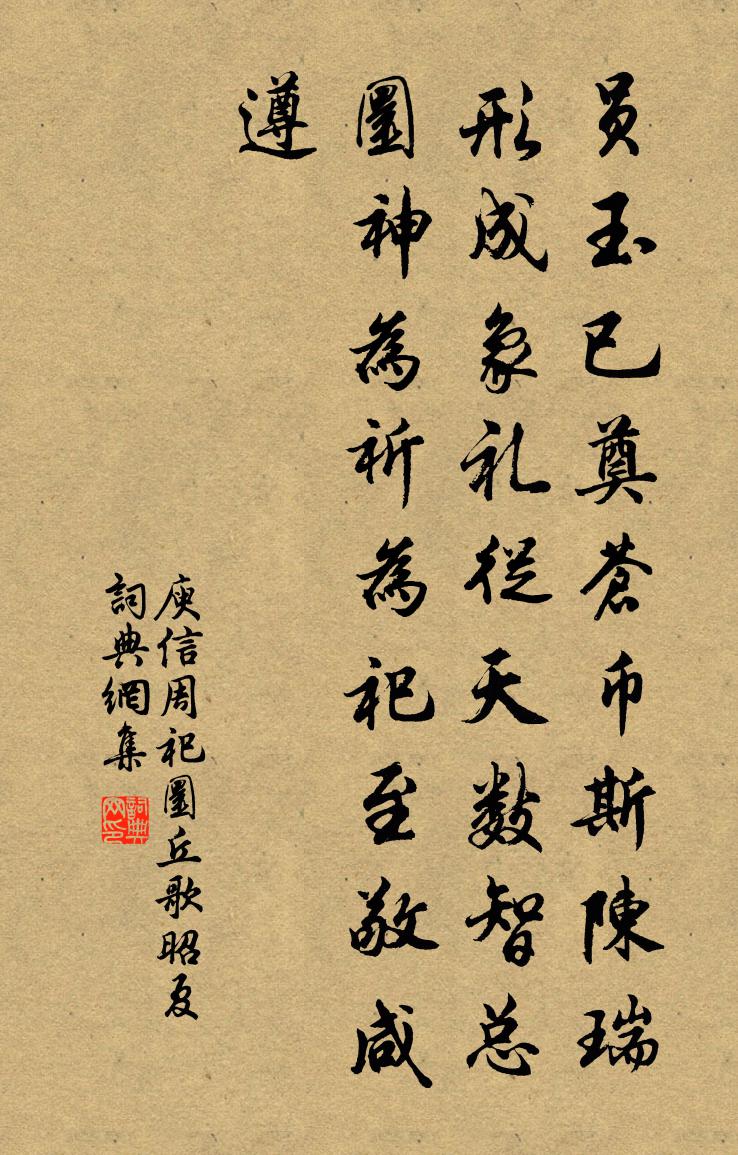 员玉已奠蒼币斯陳瑞
形成象礼從天数智总
圜神為祈為祀至敬咸
遵
庾信周祀圜丘歌昭夏
詞典網集
詞典网印